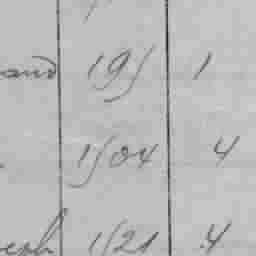 and 195 1
1504 4
eph 1521 4